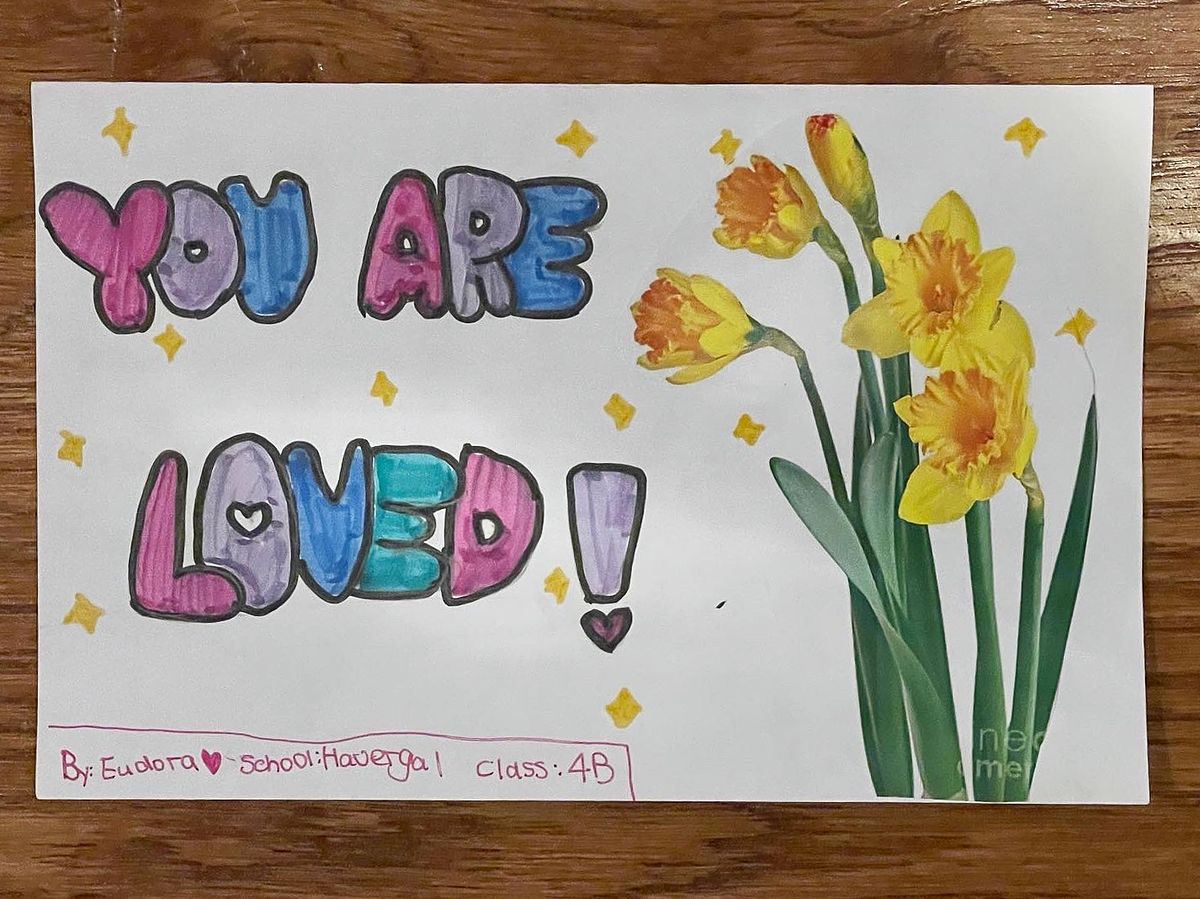 YOU ARE
LOVED!
By: Eudora♥ - School: Havergal Class: 4B